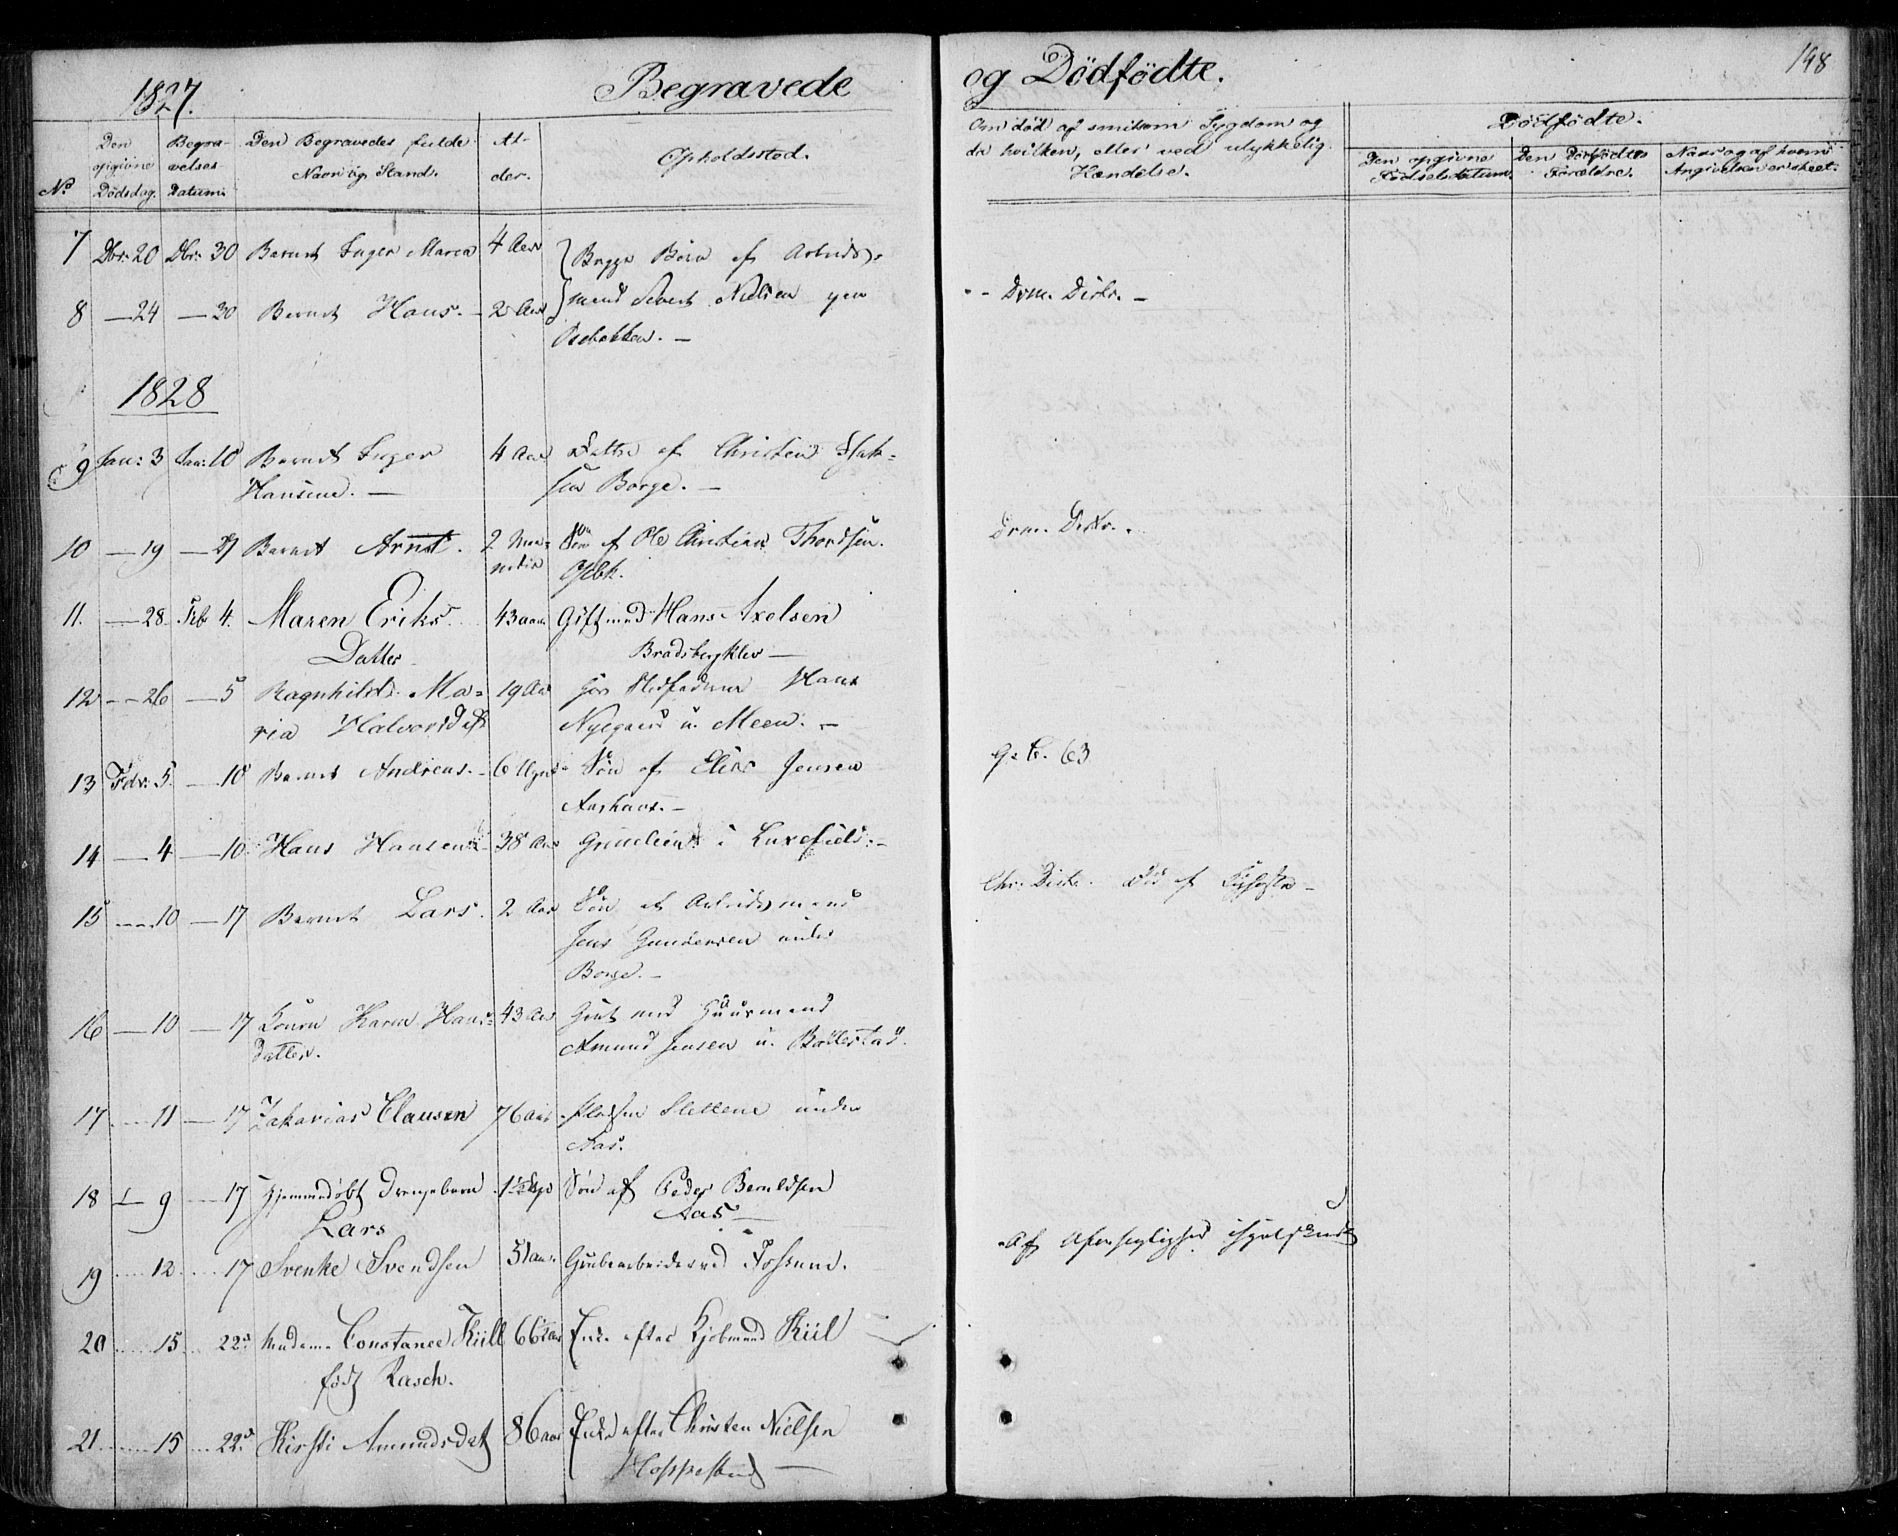 1827.
Begravede
og Dødfødte.
148
No
Den opgivne Dødsdag.
Begravelses Datum.
Den Begravedes fulde Navn og Stand.
Alder.
Opholdssted.
Om død af smitsom Sygdom og
da hvilken, eller ved ulykkelig
Hændelse.
Dødfødte.
Den opgivne Fødselsdatum.
Den Dødfødtes Forældre.
Navn og af hvem Angivelsen er skeet.
7 Dbr: 20 Dbr: 30 Barnet Inger Maren 4 Aar Begge Børn af Arbeids-
8 — 24 — 30 Barnet Hans. - 2 Aar mand Sivert Nielsen
Osebakken. —
- - Drm. Distr. —
1828
9 Jan: 3 Jan: 10 Barnet Inger 4 Aar Datter af Christen Isak-
Hansine. — sen Borge. —
10 — 19 — Barnet Arnt. 2 Maa- Søn af Ole Christian Thordsen.
neder Osebk.
Drm. Distr. -
11. — 28. Feb 4. Maren Eriks 43 aar Gift med Hans Axelsen
Datter Bradsbergklev —
12 - - 26 — 5 Ragnhild Ma- 19 Aar Hans
ria Halvorsdatt Nyegaard u. Meen. —
13 Febr: 5. — 10 Barnet Andreas. - 6 Ugr Søn af Elias Jensen
Aarhaus. —
g: b. 63
14 — 4 — 10. Hans Hansen 38 Aar i Luxefield. -
15 — 10 — 17 Barnet Lars. 2 Aar Søn af Arbeidsmand
Jens Gundersen under
Borge. —
Chr. Distr. Død af
16 — 10 — 17 Konen Karen Hans- 43 Aar Gift med Huusmand
datter. Amund Jensen u. Bøllestad.
17 — 11 — 17 Zakarias Clausen 76 aar Pladsen Slettene under
Aas.
18 — 9 — 17 Hjemmedøbt Drengebarn Søn af Peder Berntdsen
Lars Aas —
19 .... 12 .... 17 Svenke Svendsen 51 aar. Grubearbeider ved Fossum.
20 .... 15 .... 22d Madame Constance Kiill 66 aar Enke efter Kjøbmand Kiil
født Rasch.
21 .... 15 .... 22d Kirsti Amundsdat 86 aar Enke efter Christen Nielsen
Hoppestad —